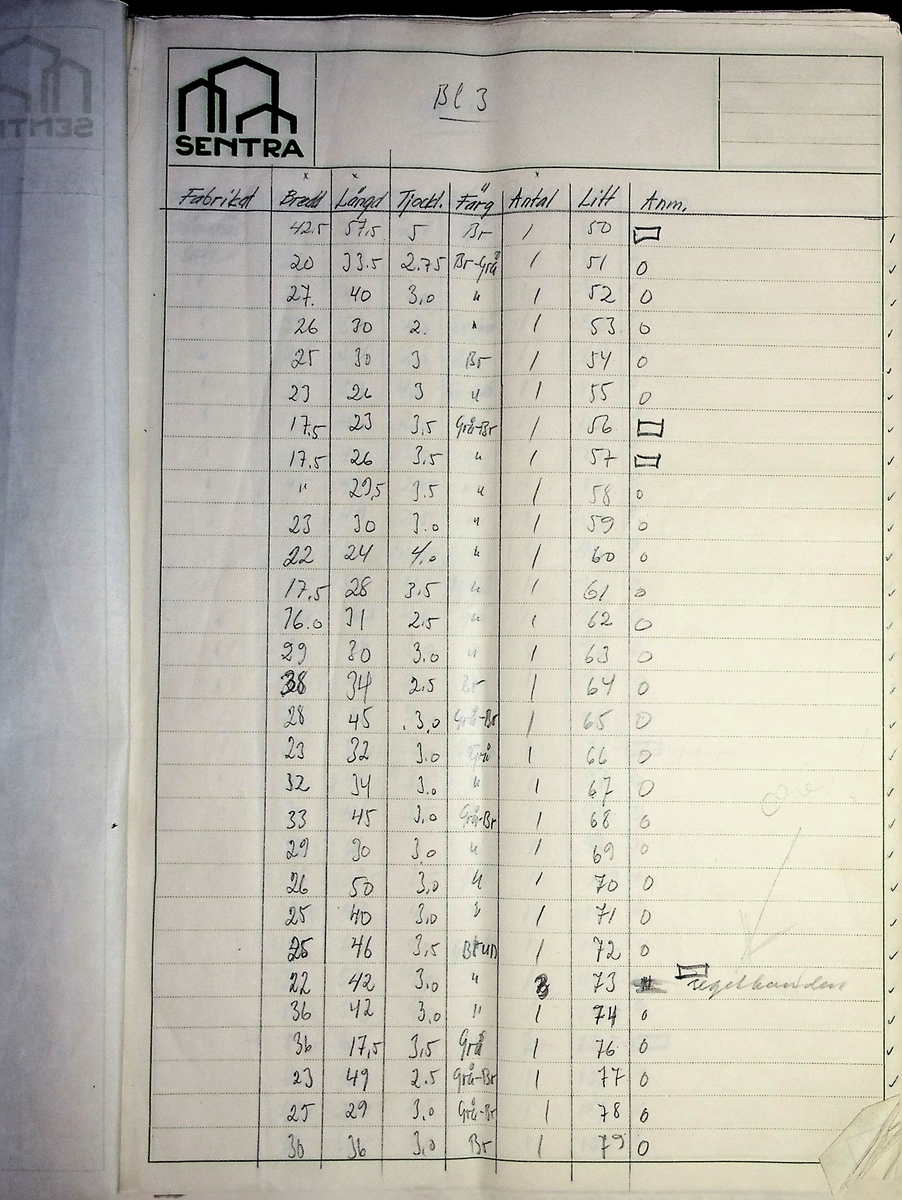 SENTRA
Bl 3
Fabrikat Bredd Längd Tjockl. Färg Antal Litt Anm.
42.5 57,5 5 Br 1 50
20 33.5 2.75 Br-Grå 1 51 0
27. 40 3,0 " 1 52 0
26 30 2. " 1 53 0
25 30 3 Br 1 54 0
23 26 3 " 1 55 0
17.5 23 3,5 Grå-Br 1 56
17.5 26 3,5 " 1 57
" 29,5 3.5 " 1 58 0
23 30 3.0 " 1 59 0
22 24 4,0 " 1 60 0
17,5 28 3,5 " 1 61 0
31 2.5 " 1 62 0
29 30 3.0 " 1 63 0
38 34 2.5 Br 1 64 0
28 45 3,0 Grå-Br 1 65 0
23 32 3.0 Grå 1 66 0
32 34 3.0 " 1 67 0
33 45 3,0 Grå-Br 1 68 0
29 30 3.0 " 1 69 0
26 50 3,0 " 1 70 0
25 40 3,0 " 1 71 0
25 46 3,5 Brun 1 72 0
22 42 3,0 " 73
36 42 3,0 " 1 74 0
36 17,5 3,5 Grå 1 76 0
23 49 2.5 Grå-Br 1 77 0
25 29 3,0 Grå-Br 1 78 0
30 36 3,0 Br 1 79 0